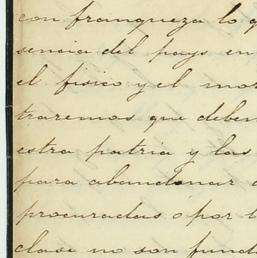 con franqueza lo q
sencia del pays en
el fisico y el mor
traremos que deben
estra patria y las
para abandonar
procuradas o por l
clase no son fund